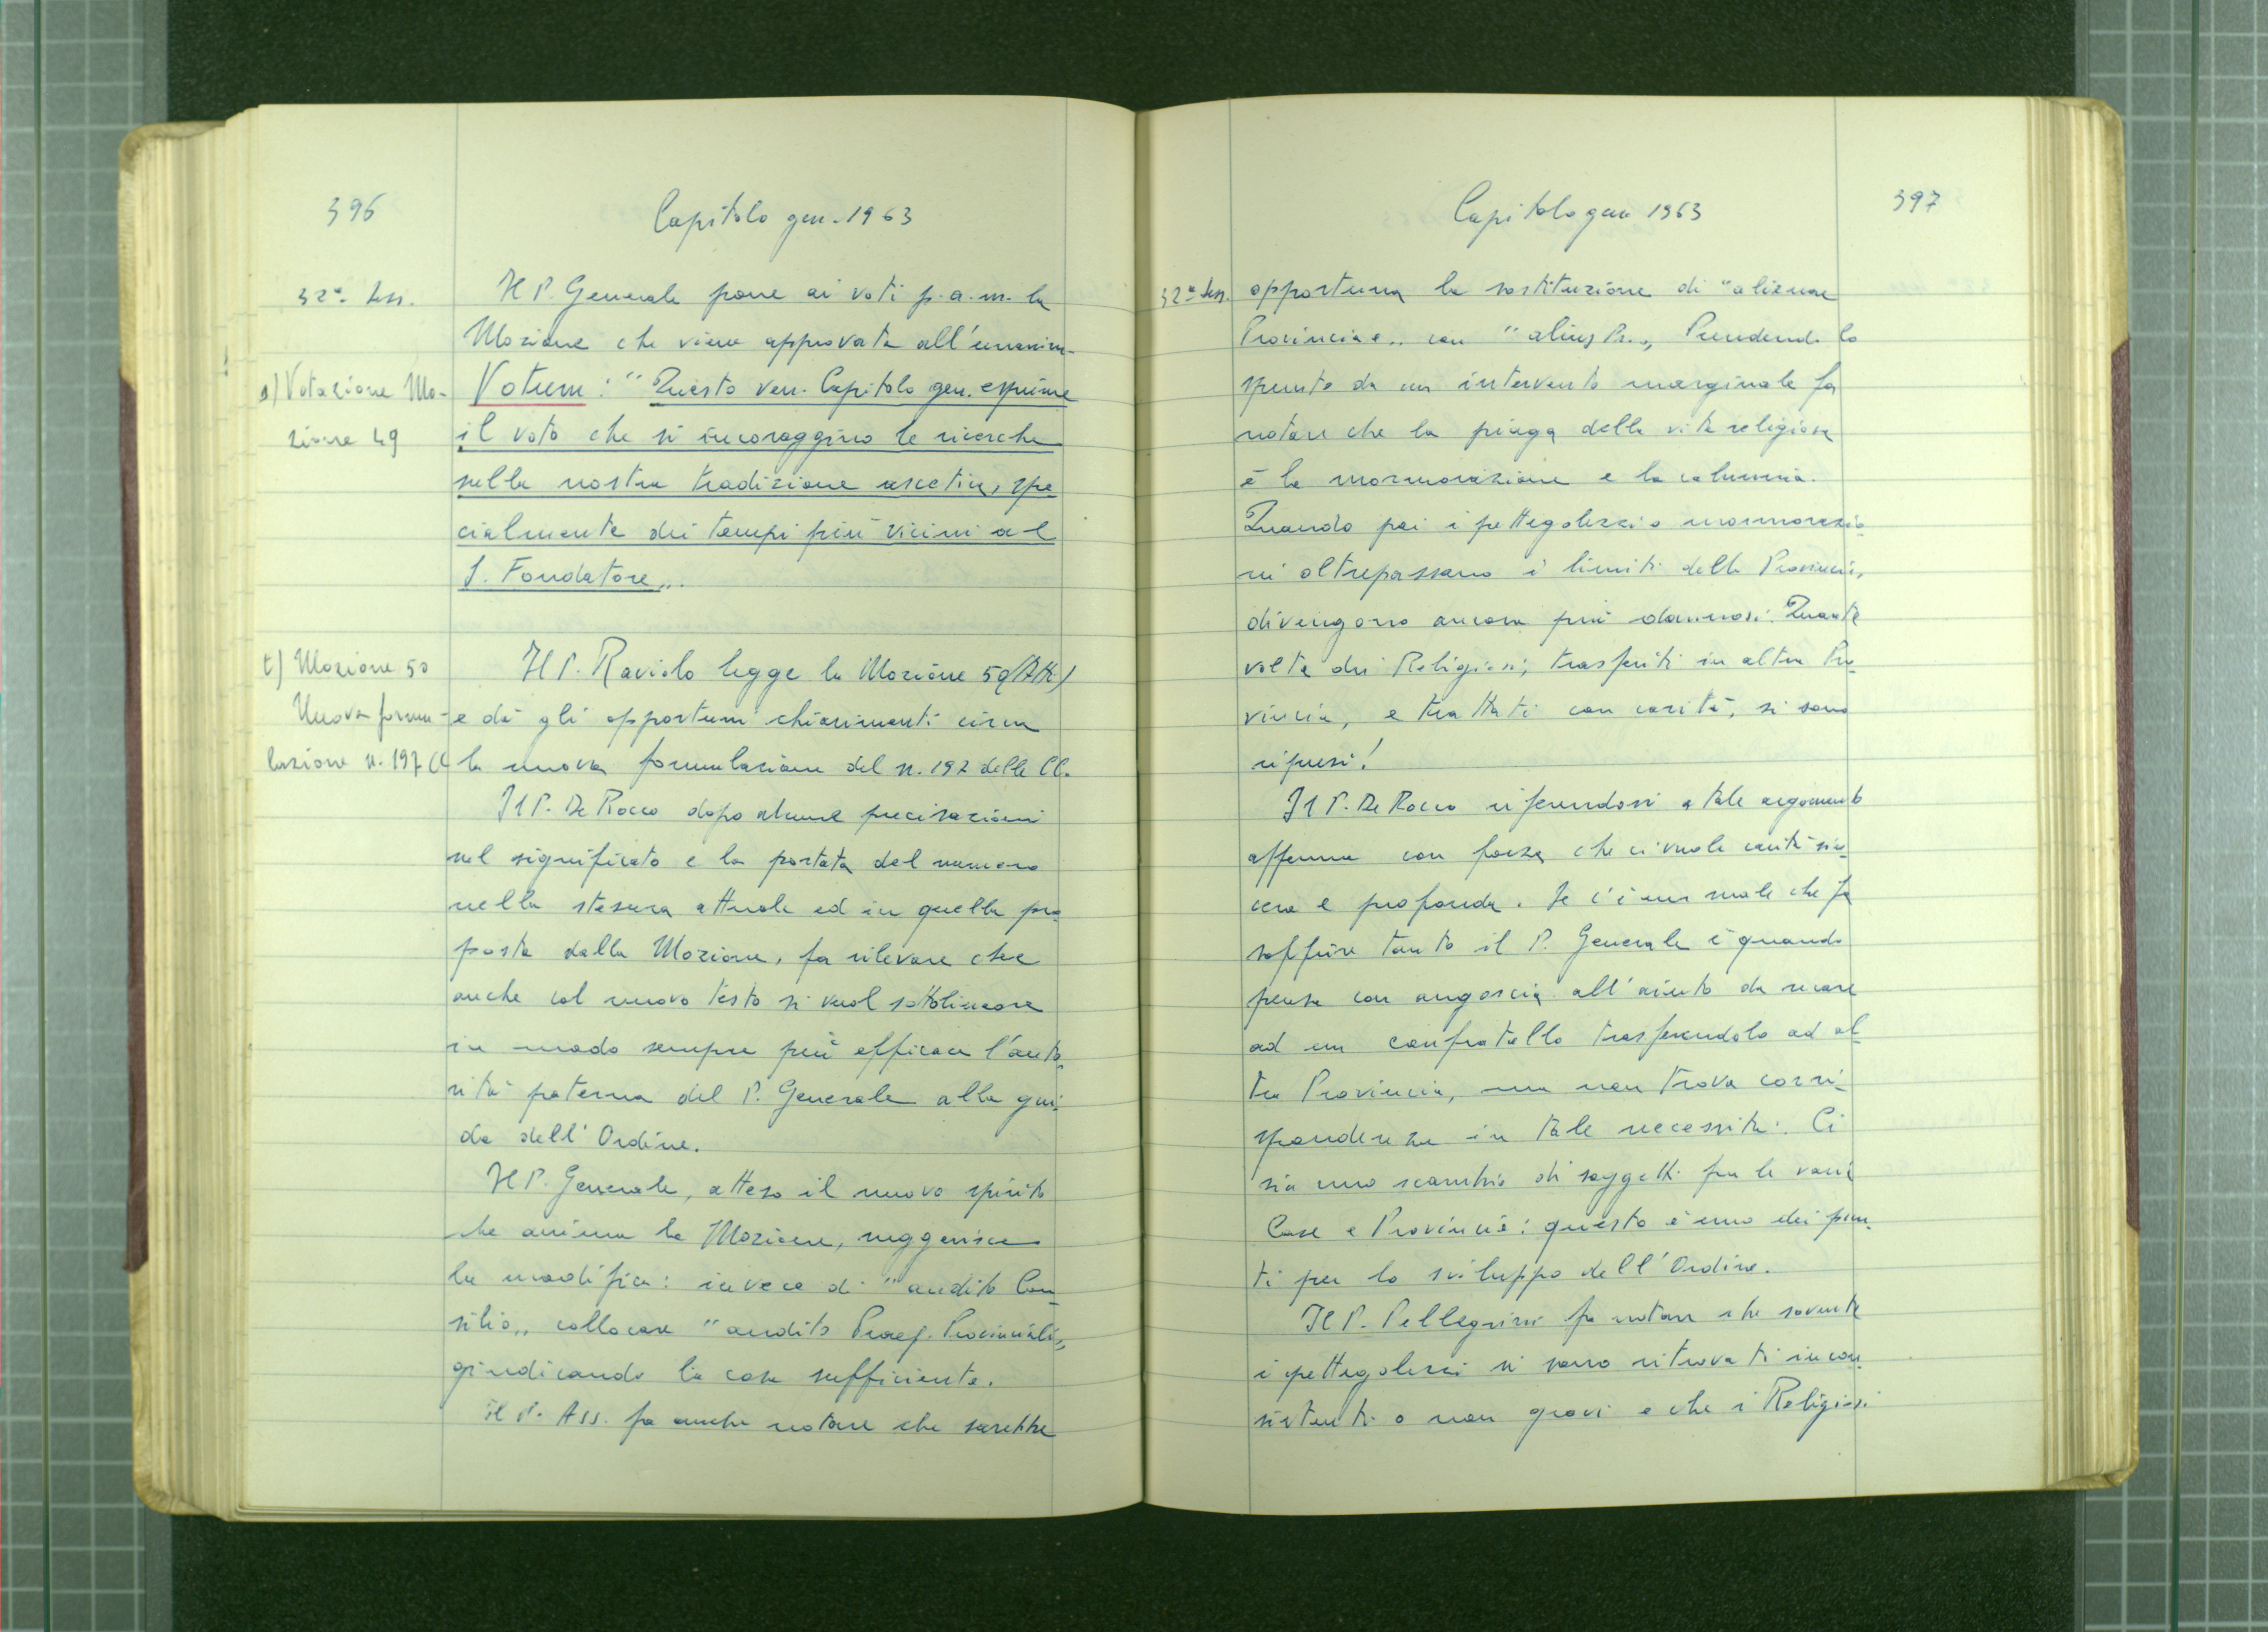 396
Capitolo gen. 1963
32ª Sess.
Il P. Generale pone ai voti p.a.m. la
Mozione che viene approvata all'unanim.
s) Votazione Mo-
zione 49
Votum: "Questo ven. Capitolo gen. esprime
il voto che si incoraggino le ricerche
nella nostra tradizione ascetica, spe
cialmente dei tempi più vicini al
S. Fondatore„.
t) Mozione 50
Nuova formu-
lazione n. 197 CC
Il P. Raviolo legge la Mozione 50
e dà gli opportuni chiarimenti circa
la nuova formulazione del n. 197 delle CC.
Il P. De Rocco dopo alcune precisazioni
sul significato e la portata del numero
nella stesura attuale ed in quella pro
posta dalla Mozione, fa rilevare che
anche col nuovo testo si vuol sottolineare
in modo sempre più efficace l'auto-
rità paterna del P. Generale alla gui-
da dell'Ordine.
Il P. Generale, atteso il nuovo spirito
che anima la Mozione, suggerisce
la modifica: invece di "audito Con-
silio„ collocare "audito Praep. Provinciali„
giudicando la cosa sufficiente.
Il P. Ass. fa anche notare che sarebbe
Capitolo gen 1963
397
32ª Sess.
opportuna la sostituzione di "alienae
Provinciae„ con "alius Pr.„ Prendendo lo
spunto da un intervento marginale fa
notare che la piaga della vita religiosa
è la mormorazione e la calunnia.
Quando poi i pettegolezzi o mormorazio-
ni oltrepassano i limiti della Provincia,
divengono ancora più dannosi. Quante
volte dei Religiosi, trasferiti in altra Pro-
vincia, e trattati con carità, si sono
ripresi!
Il P. De Rocco riferendosi a tale argomento
afferma con forza che ci vuole carità sin-
cera e profonda. Se c'è un male che fa
soffrire tanto il P. Generale è quando
pensa con angoscia all'aiuto da recare
ad un confratello trasferendolo ad al-
tra Provincia, ma non trova corri-
spondenza in tale necessità. Ci
sia uno scambio di soggetti fra le varie
Case e Provincie: questo è uno dei pun-
ti per lo sviluppo dell'Ordine.
Il P. Pellegrini fa notare che sovente
i pettegolezzi si sono ritrovati incon-
sistenti o non gravi e che i Religiosi